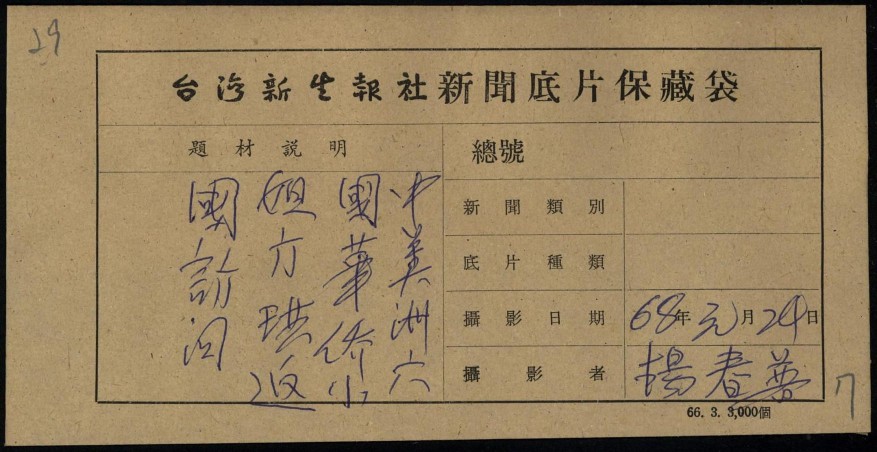 29
台灣新生報社新聞底片保藏袋
題材說明
中美洲六
國華僑小
姐方珙返
國訪問
總號
新聞類別
底片種類
攝影日期 68年元月24日
攝影者 楊春
66. 3. 3,000個